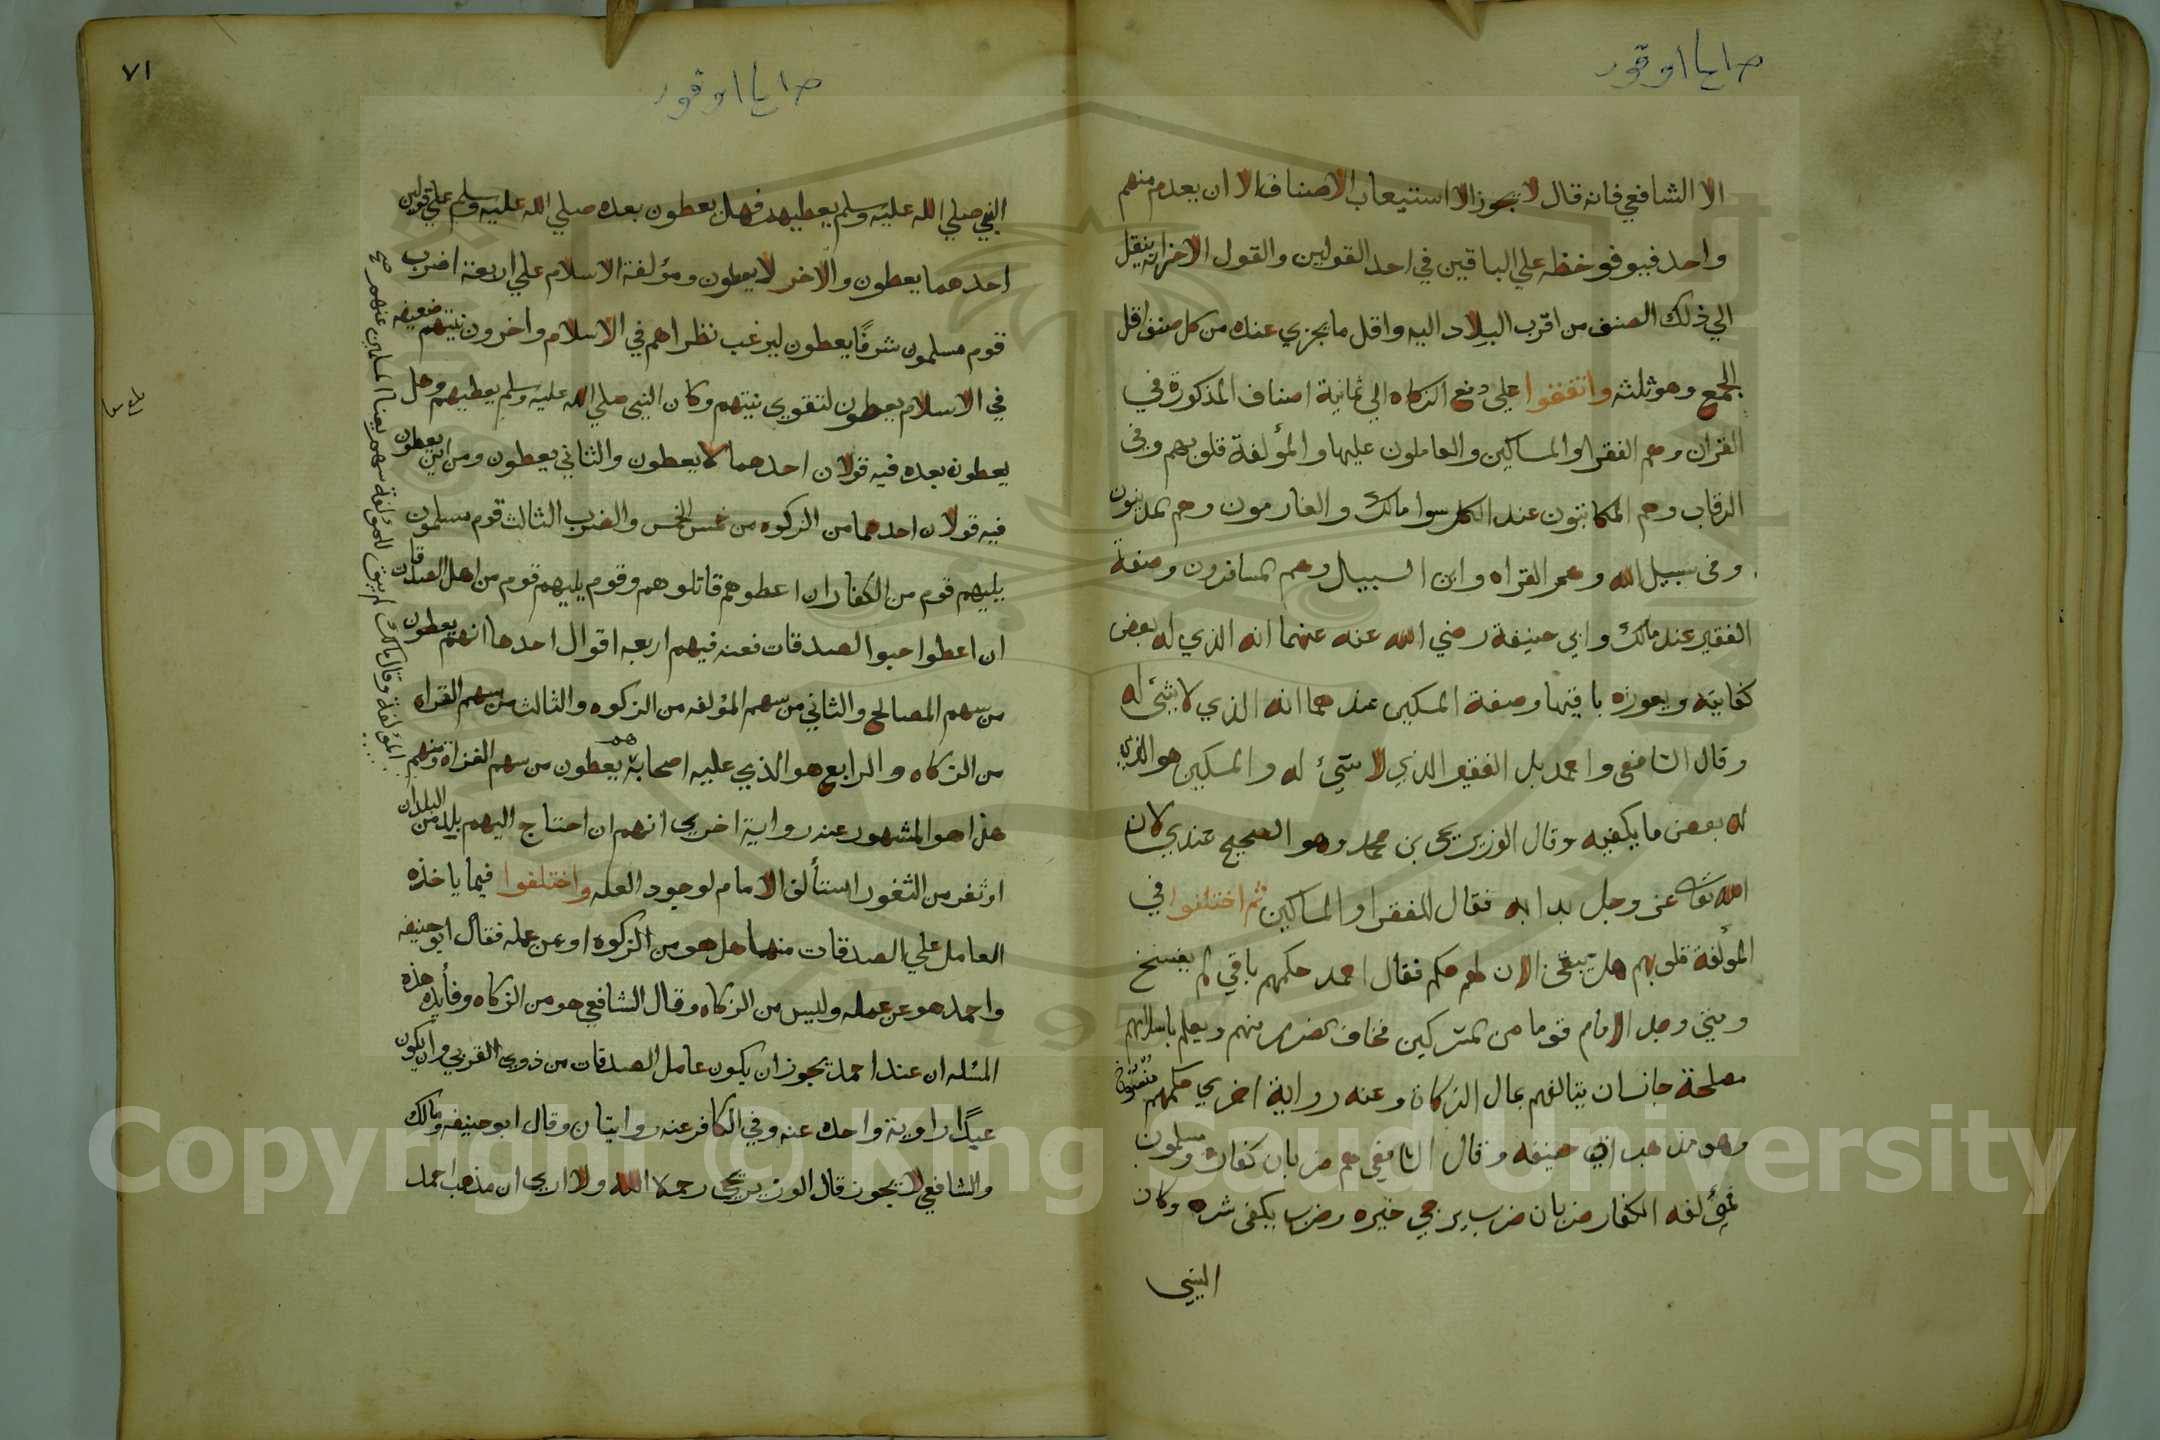 الا الشافعي فانه قال لا يجوز الا استيعاب الاصناف الا ان يعدم منهم
واحد فيوفو حظه علي الباقين في احد القولين والقول الاخر انه ينقل
الي ذلك الصنف من اقرب البلاد اليه واقل ما يجزي عنده من كل صنف اقل
الجمع وهو ثلثه واتفقوا على دفع الزكاه الي ثمانية اصناف المذكورة في
القران وهم الفقرا والمساكين والعاملون عليها والمؤلفة قلوبهم وفي
الرقاب وهم المكاتبون عند الكل سوا مالك والغارمون وهم المدينون
وفي سبيل الله وهم الغزاه وابن السبيل وهم المسافرون وصفة
الفقير عند مالك وابي حنيفة رضي الله عنه عنهما انه الذي له بعض
كفايته ويعوزه باقيها وصفة المسكين عندهما انه الذي لا شئ له
وقال الشافعي واحمد بل الفقير الذي لا شئ له والمسكين هو الذي
له بعض ما يكفيه وقال الوزير يحي بن محمد وهو الصحيح عندي لان
الله تعا عز وجل بدا به فقال للفقرا والمساكين ثم اختلفوا في
المؤلفة قلوبهم هل يبقى الان لهم حكم فقال احمد حكمهم باقي لم ينسخ
ومتي وجد الامام قوما من المشركين يخاف الضرر منهم ويعلم باسلامهم
مصلحة جاز ان يتالفهم بمال الزكاة وعنه رواية اخري حكمهم
وهو مذهب ابي حنيفه وقال الشافعي هم ضربان كفار ومسلمون
فمؤلفه الكفار ضربان ضرب يرجي خيره وضرب يكفى شره وكان
النبي
٧١
النبي صلي الله عليه وسلم يعطيهم فهل يعطون بعده صلي الله عليه وسلم علي قولين
احدهما يعطون والاخر لا يعطون ومؤلفة الاسلام علي اربعة اضرب
قوم مسلمون شرفا يعطون ليرغب نظراهم في الاسلام واخرون نيتهم ضعيفه
في الاسلام يعطون لتقوي نيتهم وكان النبي صلي الله عليه وسلم يعطيهم وهل
يعطون بعده فيه قولان احدهما لا يعطون والثاني يعطون ومن اين يعطون
فيه قولان احدهما من الزكوه من خمس الخمس والضرب الثالث قوم مسلمون
يليهم قوم من الكفار ان اعطوهم قاتلوهم وقوم يليهم قوم من اهل الصدقات
ان اعطوا جبوا الصدقات فعنه فيهم اربعه اقوال احدها انهم يعطون
من سهم المصالح والثاني من سهم المؤلفه من الزكوه والثالث من سهم الغزاه
من الزكاه والرابع هو الذي عليه اصحابه يعطون من سهم الغزاة ومنهم
هذا هو المشهور عنه رواية اخري انهم ان احتاج اليهم بلد من البلدان
او ثغر من الثغور استألف الامام لوجود العله واختلفوا فيما ياخذه
العامل علي الصدقات منها هل هو من الزكوه او عن عمله فقال ابو حنيفه
واحمد هو عن عمله وليس من الزكاه وقال الشافعي هو من الزكاه وفأيده هذه
المسله ان عند احمد يجوز ان يكون عامل الصدقات من ذوي القربي وان يكون
عبدًا رواية واحده عنه وفي الكافر عنه روايتان وقال ابو حنيفه ومالك
والشافعي لا يجوز قال الوزير يحي رحمه الله ولا اري ان مذهب احمد
وقال مالك لم يبق للمؤلفة سهم لغنا المسلمين عنهم صح
Copyright © King Saud University